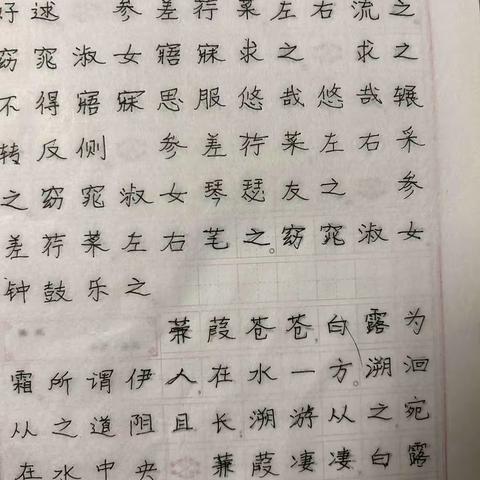 好逑 参差荇菜左右流之
窈窕淑女寤寐求之 求之
不得寤寐思服悠哉悠哉辗
转反侧 参差荇菜左右采
之窈窕淑女琴瑟友之 参
差荇菜左右芼之。窈窕淑女
钟鼓乐之
蒹葭苍苍,白露为
霜所谓伊人,在水一方。溯洄
从之道阻且长,溯游从之宛
在水中央 蒹葭凄凄白露